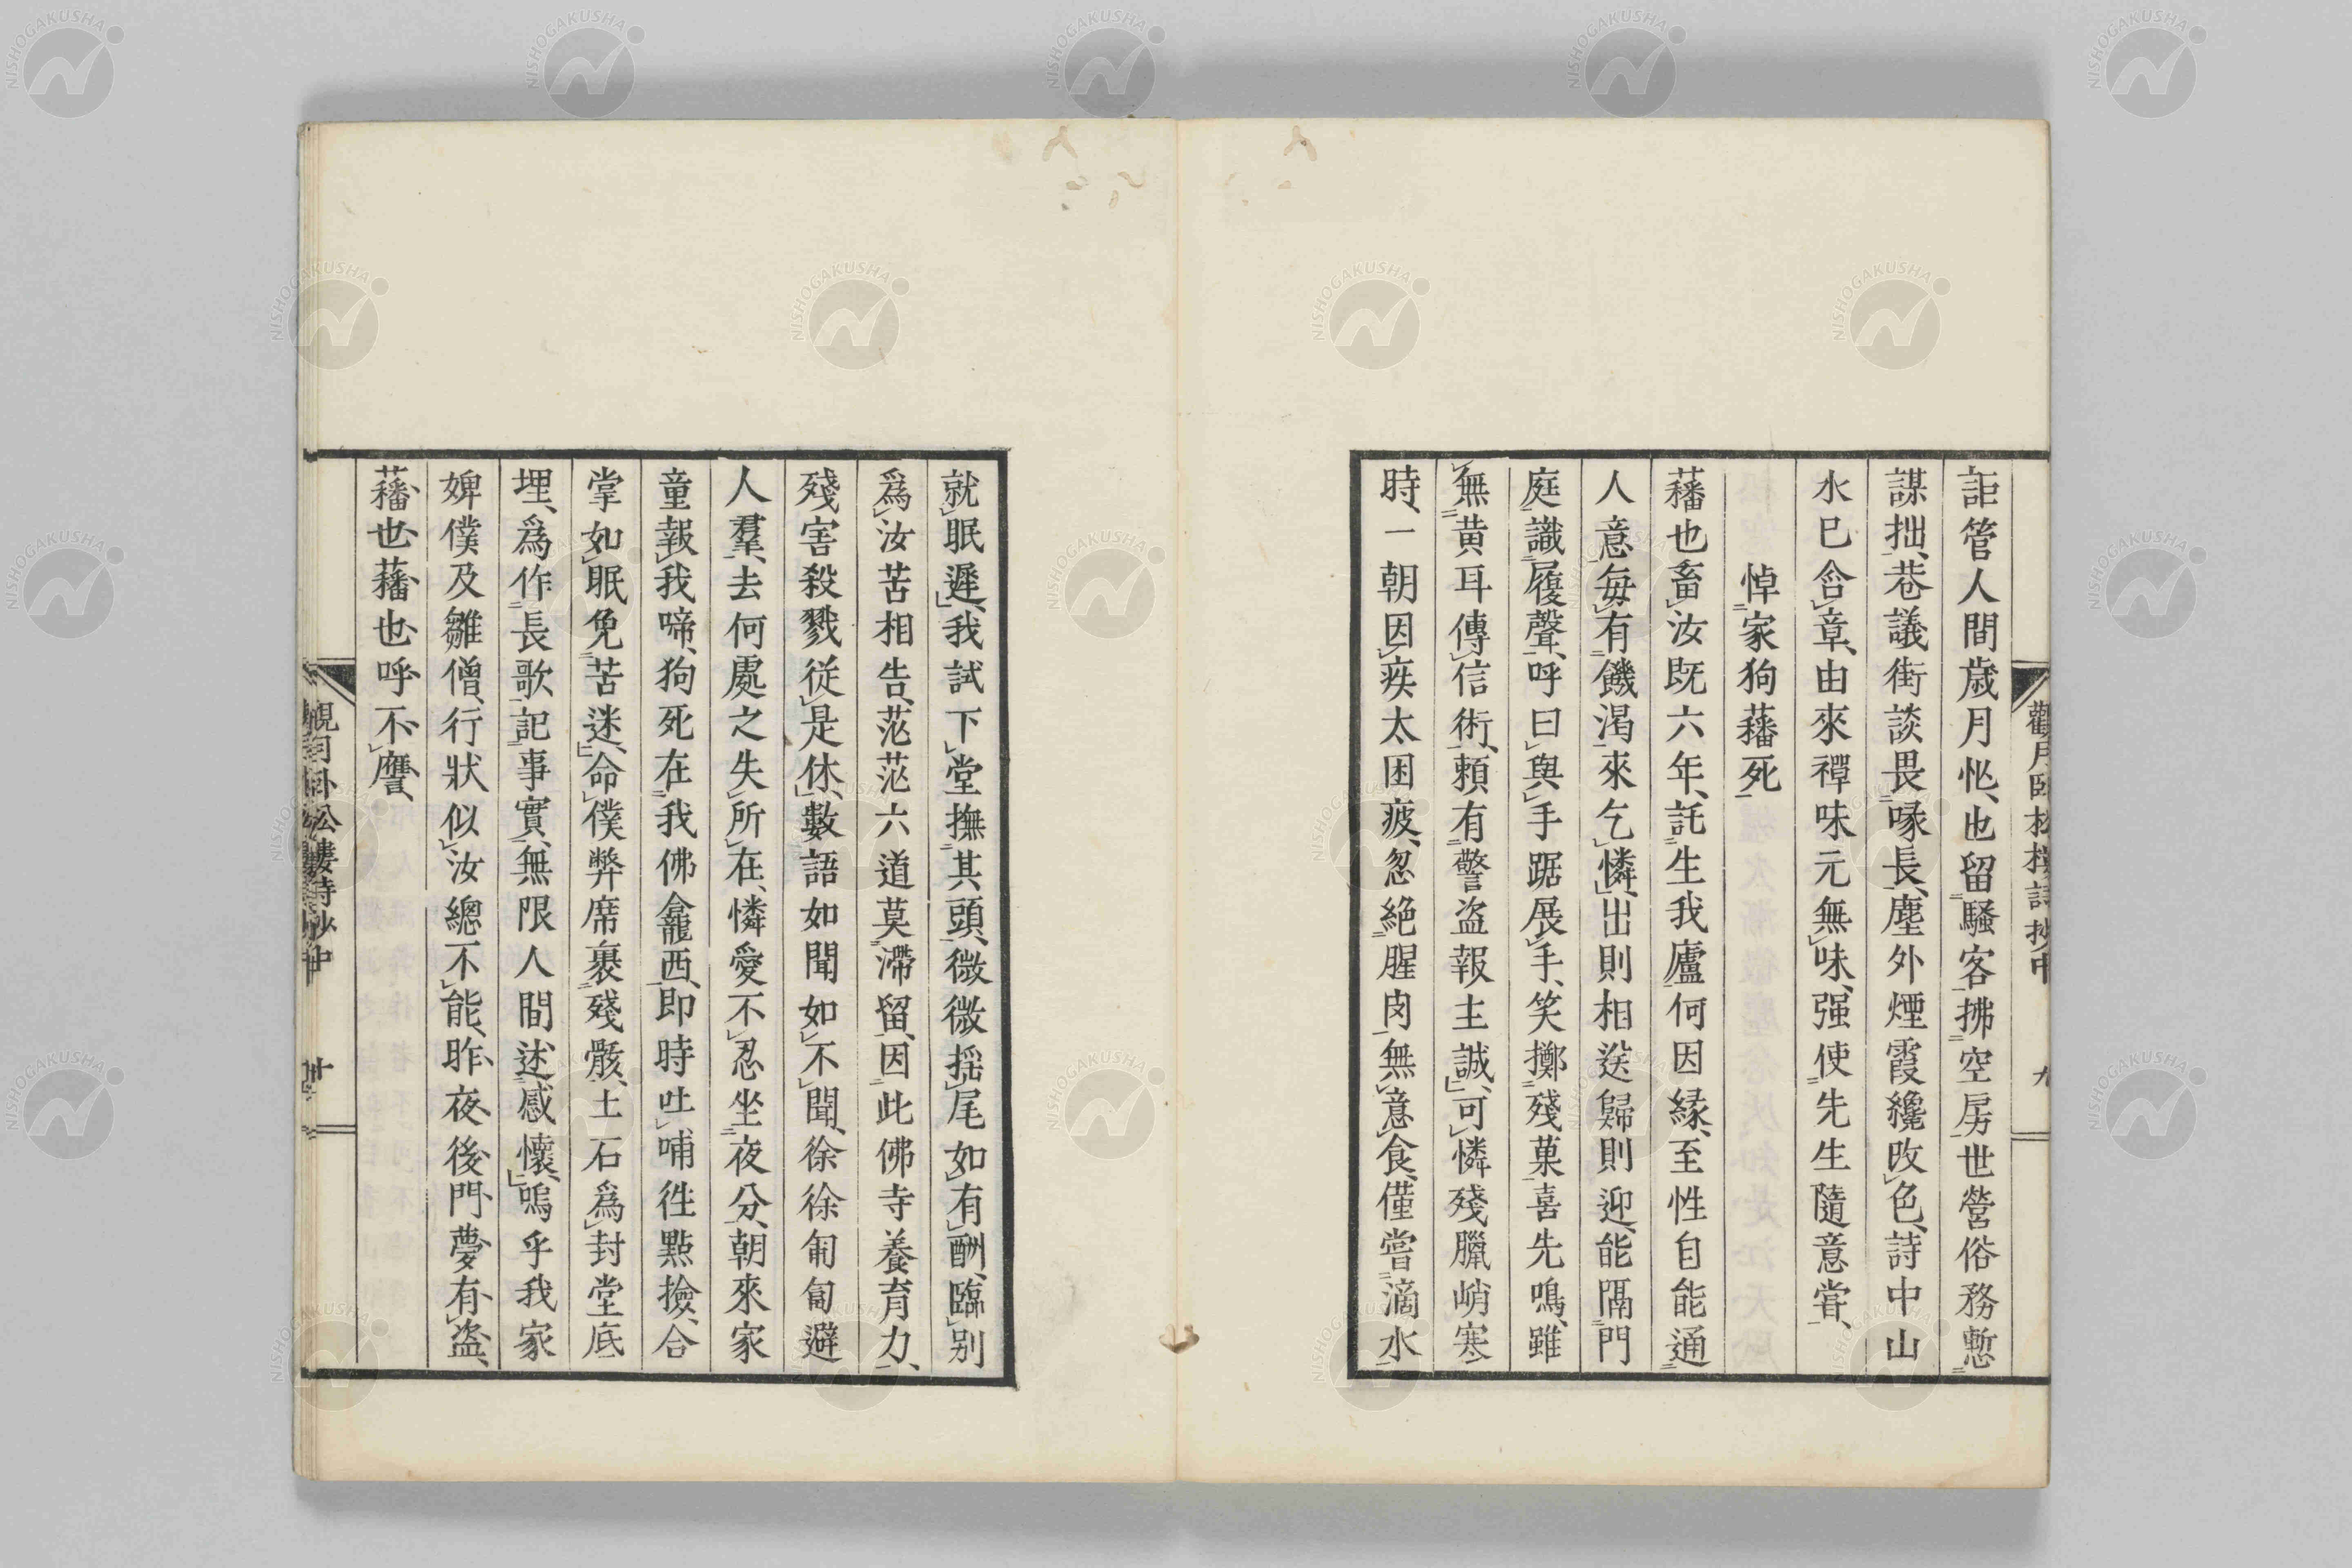 觀月臥松樓詩抄中 九
詎管人間歳月忙、也留騷客拂空房、世營俗務慙
謀拙、巷議街談畏喙長、塵外煙霞纔改色、詩中山
水已含章、由來禪味元無味、强使先生隨意嘗、
悼家狗蕃死
蕃也畜汝既六年、託生我廬何因縁、至性自能通
人意、毎有饑渴來乞憐、出則相送歸則迎、能隔門
庭識履聲、呼曰與手踞展手、笑擲殘菓喜先鳴、雖
無黄耳傳信術、頼有警盗報主誠、可憐殘臘峭寒
時、一朝因疾太困疲、忽絶腥肉無意食、僅嘗滴水
就眠遲、我試下堂撫其頭、微微揺尾如有酬、臨別
爲汝苦相告、茫茫六道莫滯留、因此佛寺養育力、
殘害殺戮從是休、數語如聞如不聞、徐徐匍匐避
人羣、去何處之失所在、憐愛不忍坐夜分、朝來家
童報我啼、狗死在我佛龕西、即時吐哺徃點撿、合
掌如眠免苦迷、命僕弊席裹殘骸、土石爲封堂底
埋、爲作長歌記事實、無限人間述感懷、嗚乎我家
婢僕及雛僧、行狀似汝總不能、昨夜後門夢有盗、
蕃也蕃也呼不譍、
觀月臥松樓詩抄中 十
NISHOGAKUSHA